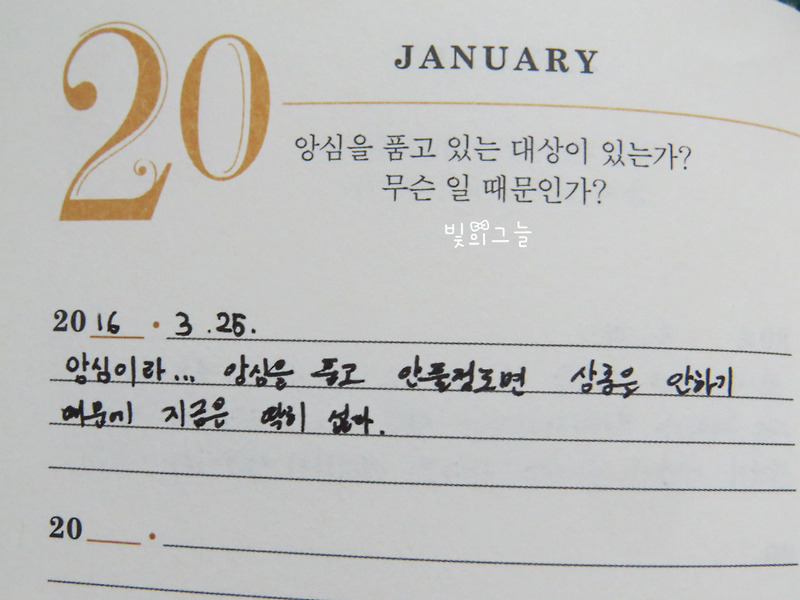 20
JANUARY
앙심을 품고 있는 대상이 있는가?
무슨 일 때문인가?
빛의그늘
2016 · 3.25.
앙심이라... 앙심을 품고 안풀정도면 상종을 안하기
때문에 지금은 딱히 없다.
20 ·